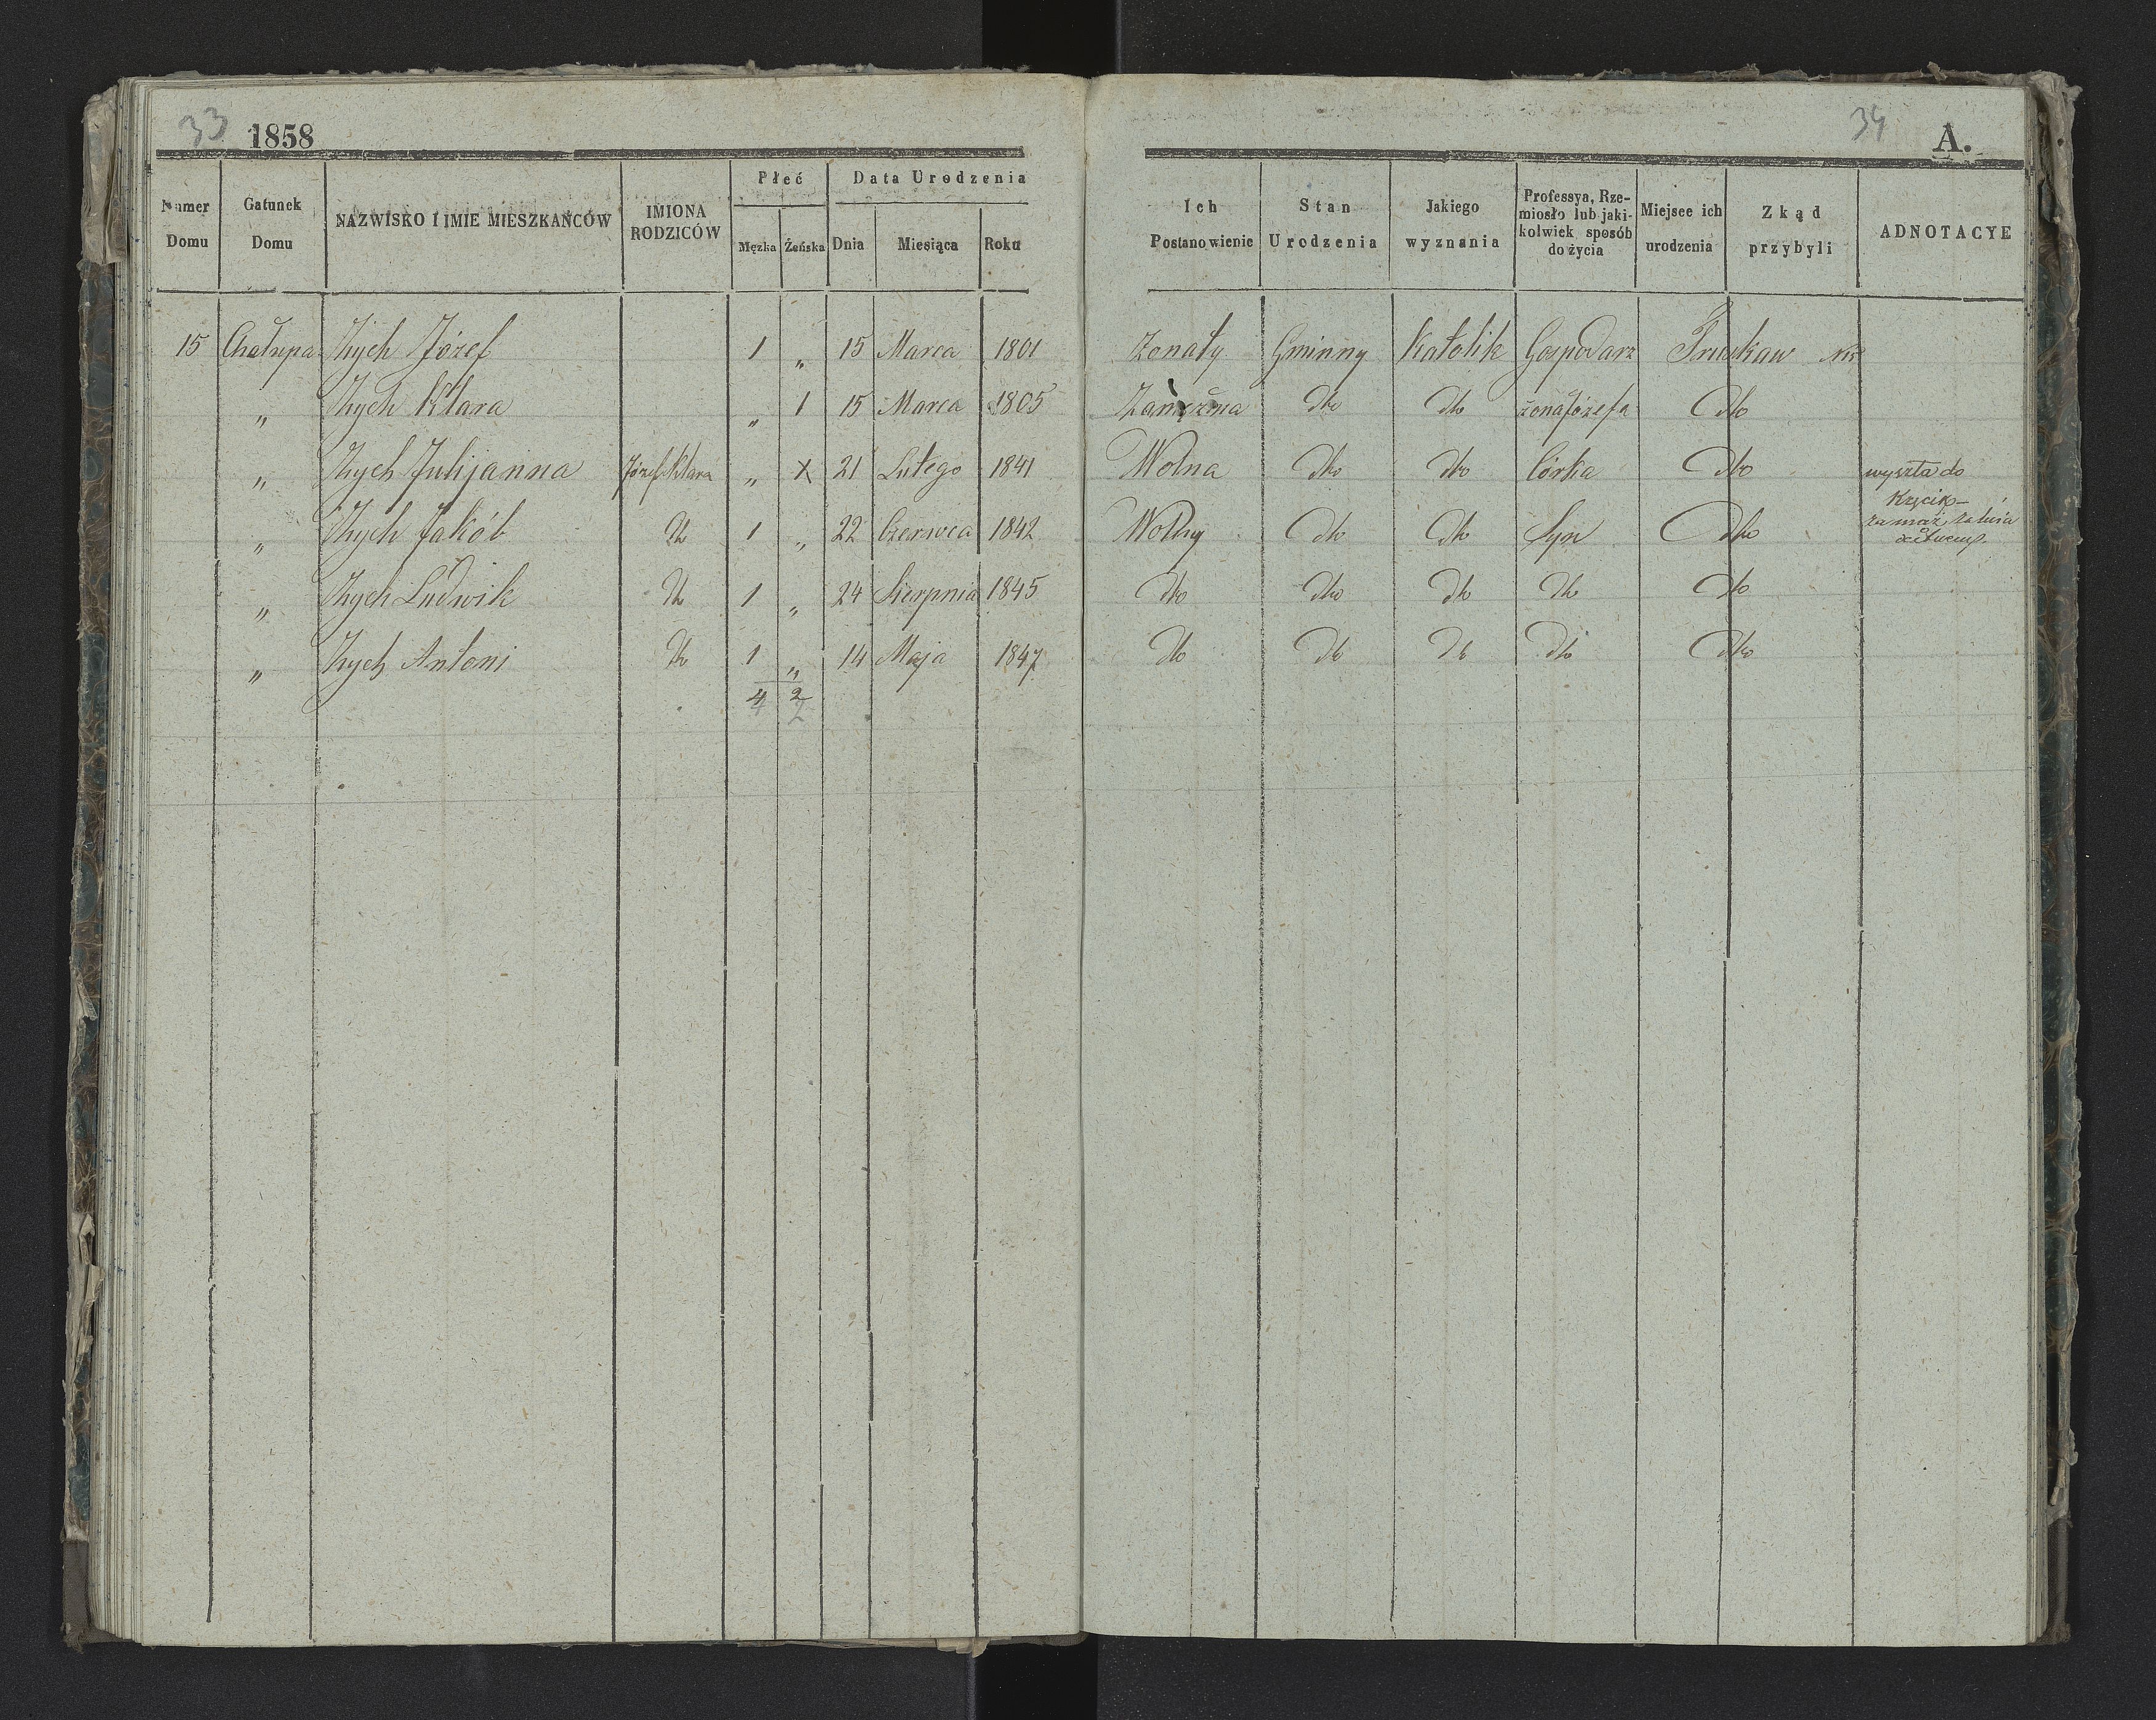 33 1858
34 A.
Numer Domu Gatunek Domu NAZWISKO I IMIE MIESZKAŃCÓW IMIONA RODZICÓW Płeć Męzka Żeńska Data Urodzenia Dnia Miesiąca Roku Ich Postanowienie Stan Urodzenia Jakiego wyznania Professya, Rzemiosło lub jakikolwiek sposób do życia Miejsce ich urodzenia Zkąd przybyli ADNOTACYE
15 Chałupa Zych Józef 1 „ 15 Marca 1801 Zonaty Gminny Katolik Gospodarz
„ Zych Klara „ 1 15 Marca 1805 Zamężna dto dto żona Józefa dto
„ Zych Julijanna Józef Klara „ X 21 Lutego 1841 Wolna dto dto Córka dto wyszła do
„ Zych Jakób dto 1 „ 22 Czerwca 1842 Wolny dto dto Syn dto za mąż
„ Zych Ludwik dto 1 „ 24 Sierpnia 1845 dto dto dto dto dto
„ Zych Antoni dto 1 „ 14 Maja 1847 dto dto dto dto dto
4 2
4 2